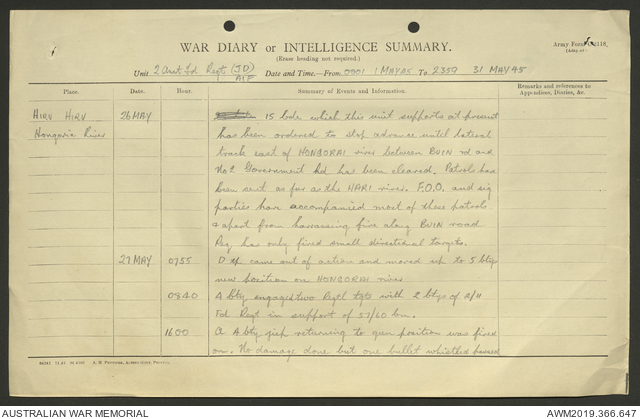 Army Form C.2118.
WAR DIARY or INTELLIGENCE SUMMARY.
(Erase heading not required.)
(Adap.of .)
Unit 2 Aust Fd Regt (JD) AIF Date and Time—From 0001 1 MAY 45 To 2359 31 MAY 45
Place. Date. Hour. Summary of Events and Information. Remarks and references to Appendices, Diaries, &c.
HIRU HIRU 26 MAY 15 bde which this unit supports at present
Hongorai River has been ordered to stop advance until lateral
track east of HONGORAI river between BUIN rd and
No 2 Government rd has been cleared. Patrols has
been sent as far as the HARI river. F.O.O. and sig
parties have accompanied most of these patrols
& apart from harrassing fire along BUIN road
Reg has only fired small divisional targets.
27 MAY 0755 D tp came out of action and moved up to 5 bty
new position on HONGORAI river
0840 A bty engaged two Regtl tgts with 2 btys of 2/11
Fd Regt in support of 57/60 bn.
1600 A A bty jeep returning to gun position was fired
on. No damage done but one bullet whistled passed
AUSTRALIAN WAR MEMORIAL
AWM2019.366.647